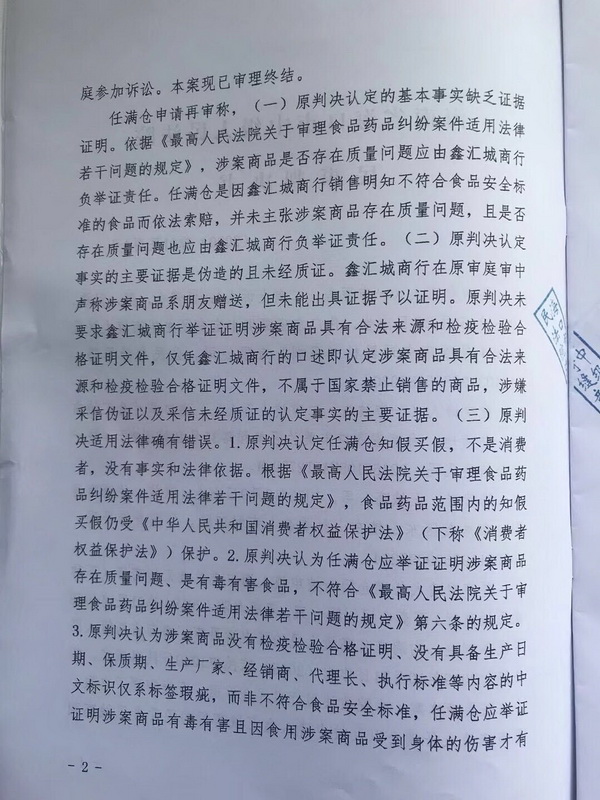 庭参加诉讼。本案现已审理终结。
任满仓申请再审称，（一）原判决认定的基本事实缺乏证据
证明。依据《最高人民法院关于审理食品药品纠纷案件适用法律
若干问题的规定》，涉案商品是否存在质量问题应由鑫汇城商行
负举证责任。任满仓是因鑫汇城商行销售明知不符合食品安全标
准的食品而依法索赔，并未主张涉案商品存在质量问题，且是否
存在质量问题也应由鑫汇城商行负举证责任。（二）原判决认定
事实的主要证据是伪造的且未经质证。鑫汇城商行在原审庭审中
声称涉案商品系朋友赠送，但未能出具证据予以证明。原判决未
要求鑫汇城商行举证证明涉案商品具有合法来源和检疫检验合
格证明文件，仅凭鑫汇城商行的口述即认定涉案商品具有合法来
源和检疫检验合格证明文件，不属于国家禁止销售的商品，涉嫌
采信伪证以及采信未经质证的认定事实的主要证据。（三）原判
决适用法律确有错误。1.原判决认定任满仓知假买假，不是消费
者，没有事实和法律依据。根据《最高人民法院关于审理食品药
品纠纷案件适用法律若干问题的规定》，食品药品范围内的知假
买假仍受《中华人民共和国消费者权益保护法》（下称《消费者
权益保护法》）保护。2.原判决认为任满仓应举证证明涉案商品
存在质量问题、是有毒有害食品，不符合《最高人民法院关于审
理食品药品纠纷案件适用法律若干问题的规定》第六条的规定。
3.原判决认为涉案商品没有检疫检验合格证明、没有具备生产日
期、保质期、生产厂家、经销商、代理长、执行标准等内容的中
文标识仅系标签瑕疵，而非不符合食品安全标准，任满仓应举证
证明涉案商品有毒有害且因食用涉案商品受到身体的伤害才有
- 2 -